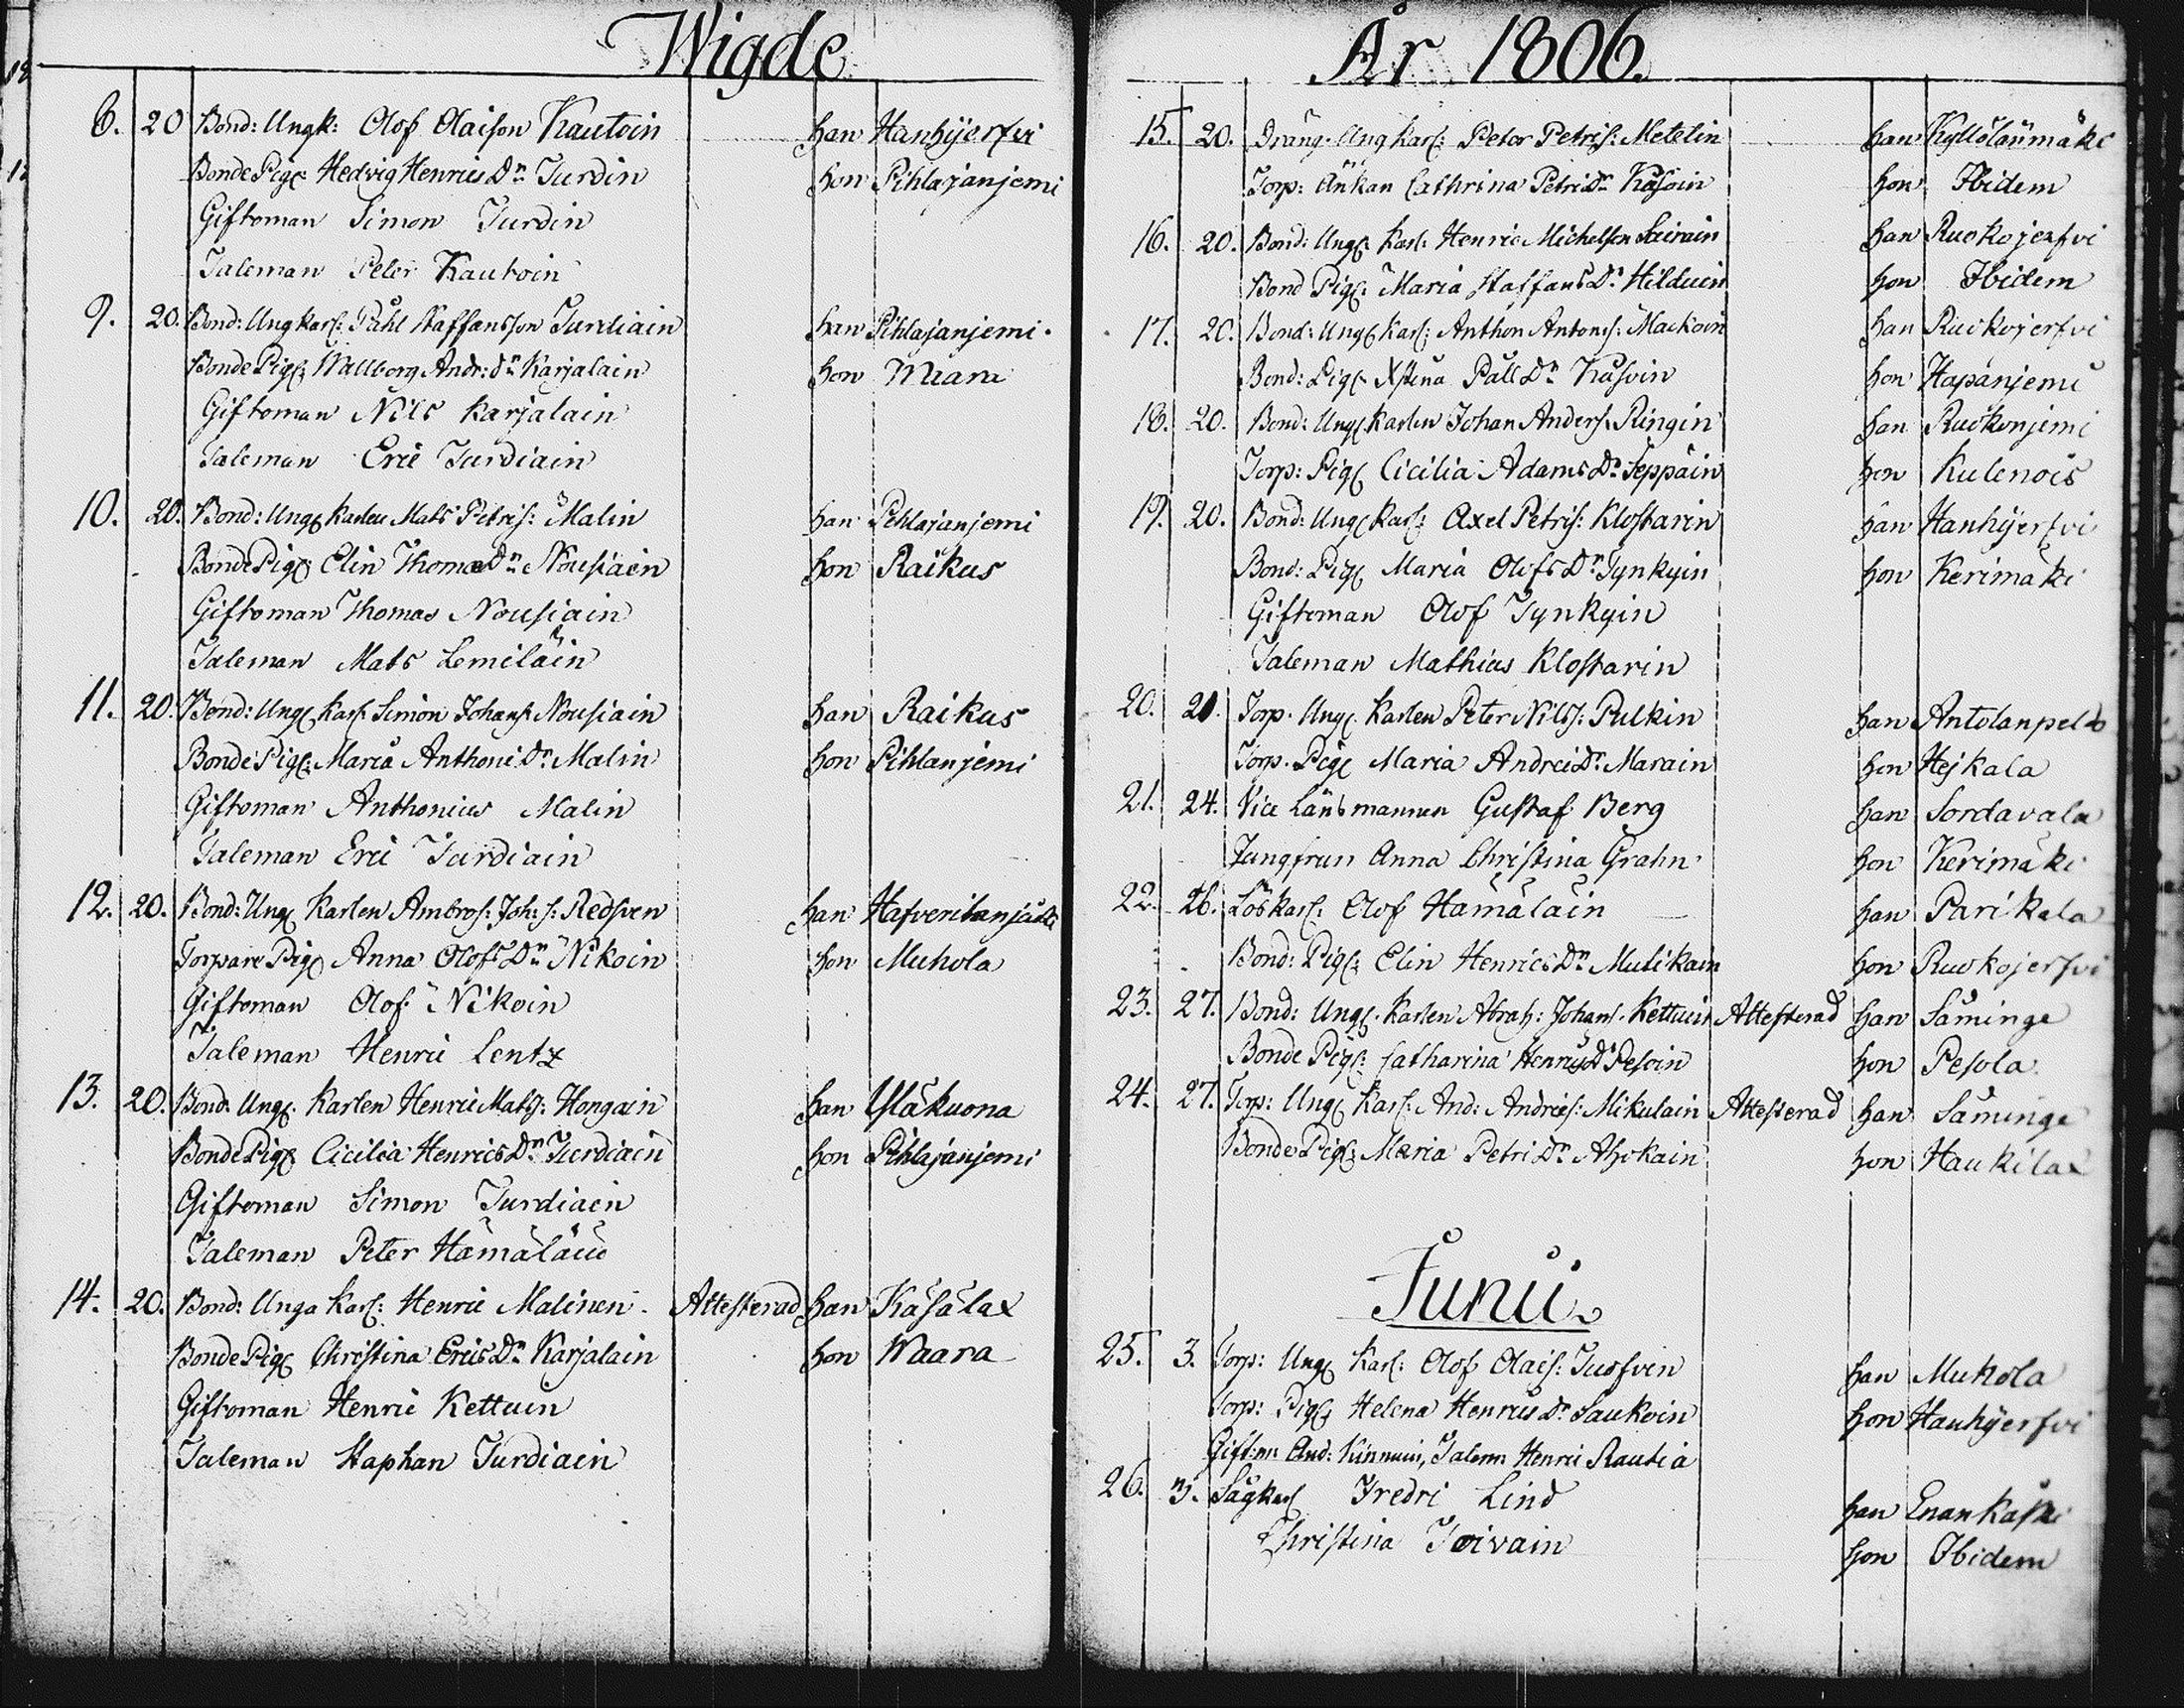 Wigde
8. 20 Bond: Ungk: Olof Olaison Kautoin han Hanhijerfvi
Bonde Pig: Hedvig Henrics Dr Turdin hon Pihlajanjemi
Giftoman Simon Turdin
Taleman Peter Kautoin
9. 20. Bond: Ungkarl: Påhl Staffansson Turdiain han Pihlajanjemi.
Bonde Pig: Wallborg Andr: dr Karjalain hon Waara
Giftoman Nils Karjalain
Taleman Eric Turdiain
10. 20. Bond: Ung karlen Mats Petris: Malin han Pehlajanjemi
Bonde Pig: Elin Thomæ Dr Nousiäen hon Raikus
Giftoman Thomas Nousiain
Taleman Mats Lemiläin
11. 20. Bond: Ung Karl: Simon Johans Nousiain han Raikus
Bonde Pig: Maria Anthoni Dr Malin hon Pihlanjemi
Giftoman Anthonius Malin
Taleman Eric Turdiain
12. 20. Bond: Ung Karlen Ambros: Joh: s: Redsven han
Torpare Pig Anna Olofs Dr Nikoin hon Muhola
Giftoman Olof Nikoin
Taleman Henric Lentz
13. 20. Bond: Ung. Karlen Henric Mats: Hongain han Yläkuona
Bonde Pig Cicilia Henrics Dr Turdiain hon Pihlajanjemi
Giftoman Simon Turdiaen
Taleman Peter Hämäläin
14. 20. Bond: Unga Karl: Henric Malinen. Attesterad han Käsälax
Bonde Pig Christina Erics Dr Karjalain hon Waara
Giftoman Henric Kettuin
Taleman Staphan Turdiaen
År 1806.
15. 20. Dräng. Ung Karl: Peter Petris: Metelin han Kyllölänmäki
Torp: Änkan Cathrina Petri Dr Käsoin hon Ibidem
16. 20. Bond: Ung: Karl: Henric Michelson Seirain han Ruokojerfvi
Bond Pig: Maria Staffans Dr Hilduin hon Ibidem
17. 20. Bond: Ung Karl: Anthon Antons: Mackoin han Ruokojerfvi
Bond: Pig: Xstina Påll Dr Käsoin hon Hapanjemi
18. 20. Bond: Ung karlen Johan Anders: Ringin han Ruokonjemi
Torp: Pig Cicilia Adams Dr Seppäin hon Kulenois
19. 20. Bond: Ung karl: Axel Petris: Klostarin han Hanhijerfvi
Bond: Pig Maria Olofs Dr Tynkyin hon Kerimäki
Giftoman Olof Tynkyin
Taleman Mathias Klostarin
20. 20. Torp. Ung. Karlen Peter Nils: Pulkin han Antolanpelto
Torp. Pig Maria Andrei Dr Marain hon Hejkala
21. 24. Vice Länsmannen Gustaf Berg han Sordavala
Jungfrun Anna Christina Grahn hon Kerimäki
22. 26. Löskarl: Olof Hämäläin han Parikala
Bond: Pig: Elin Henrics Dr Mutikain hon Ruokojerfvi
23. 27. Bond: Ung. Karlen Abrah: Johans. Kettuin Attesterad han Säminge
Bonde Pig: Catharina Henrics Dr Pesoin hon Pesola
24. 27. Torp: Ung Karl: And: Andries: Mikulain Attesterad han Säminge
Bonde Pig: Maria Petri Dr Ahokain hon Haukilax
Junii
25. 3. Torp: Ung Karl: Olof Olais: Tuofven han Muhola
Torp: Pig: Helena Henrics Dr Laukoin hon Hanhijerfvi
Giftmn And: Kinnuin, Talemn Henric Rautia
26. 3. Sågkarl Fredri Lind han Enankoski
Christina Toivain hon Ibidem